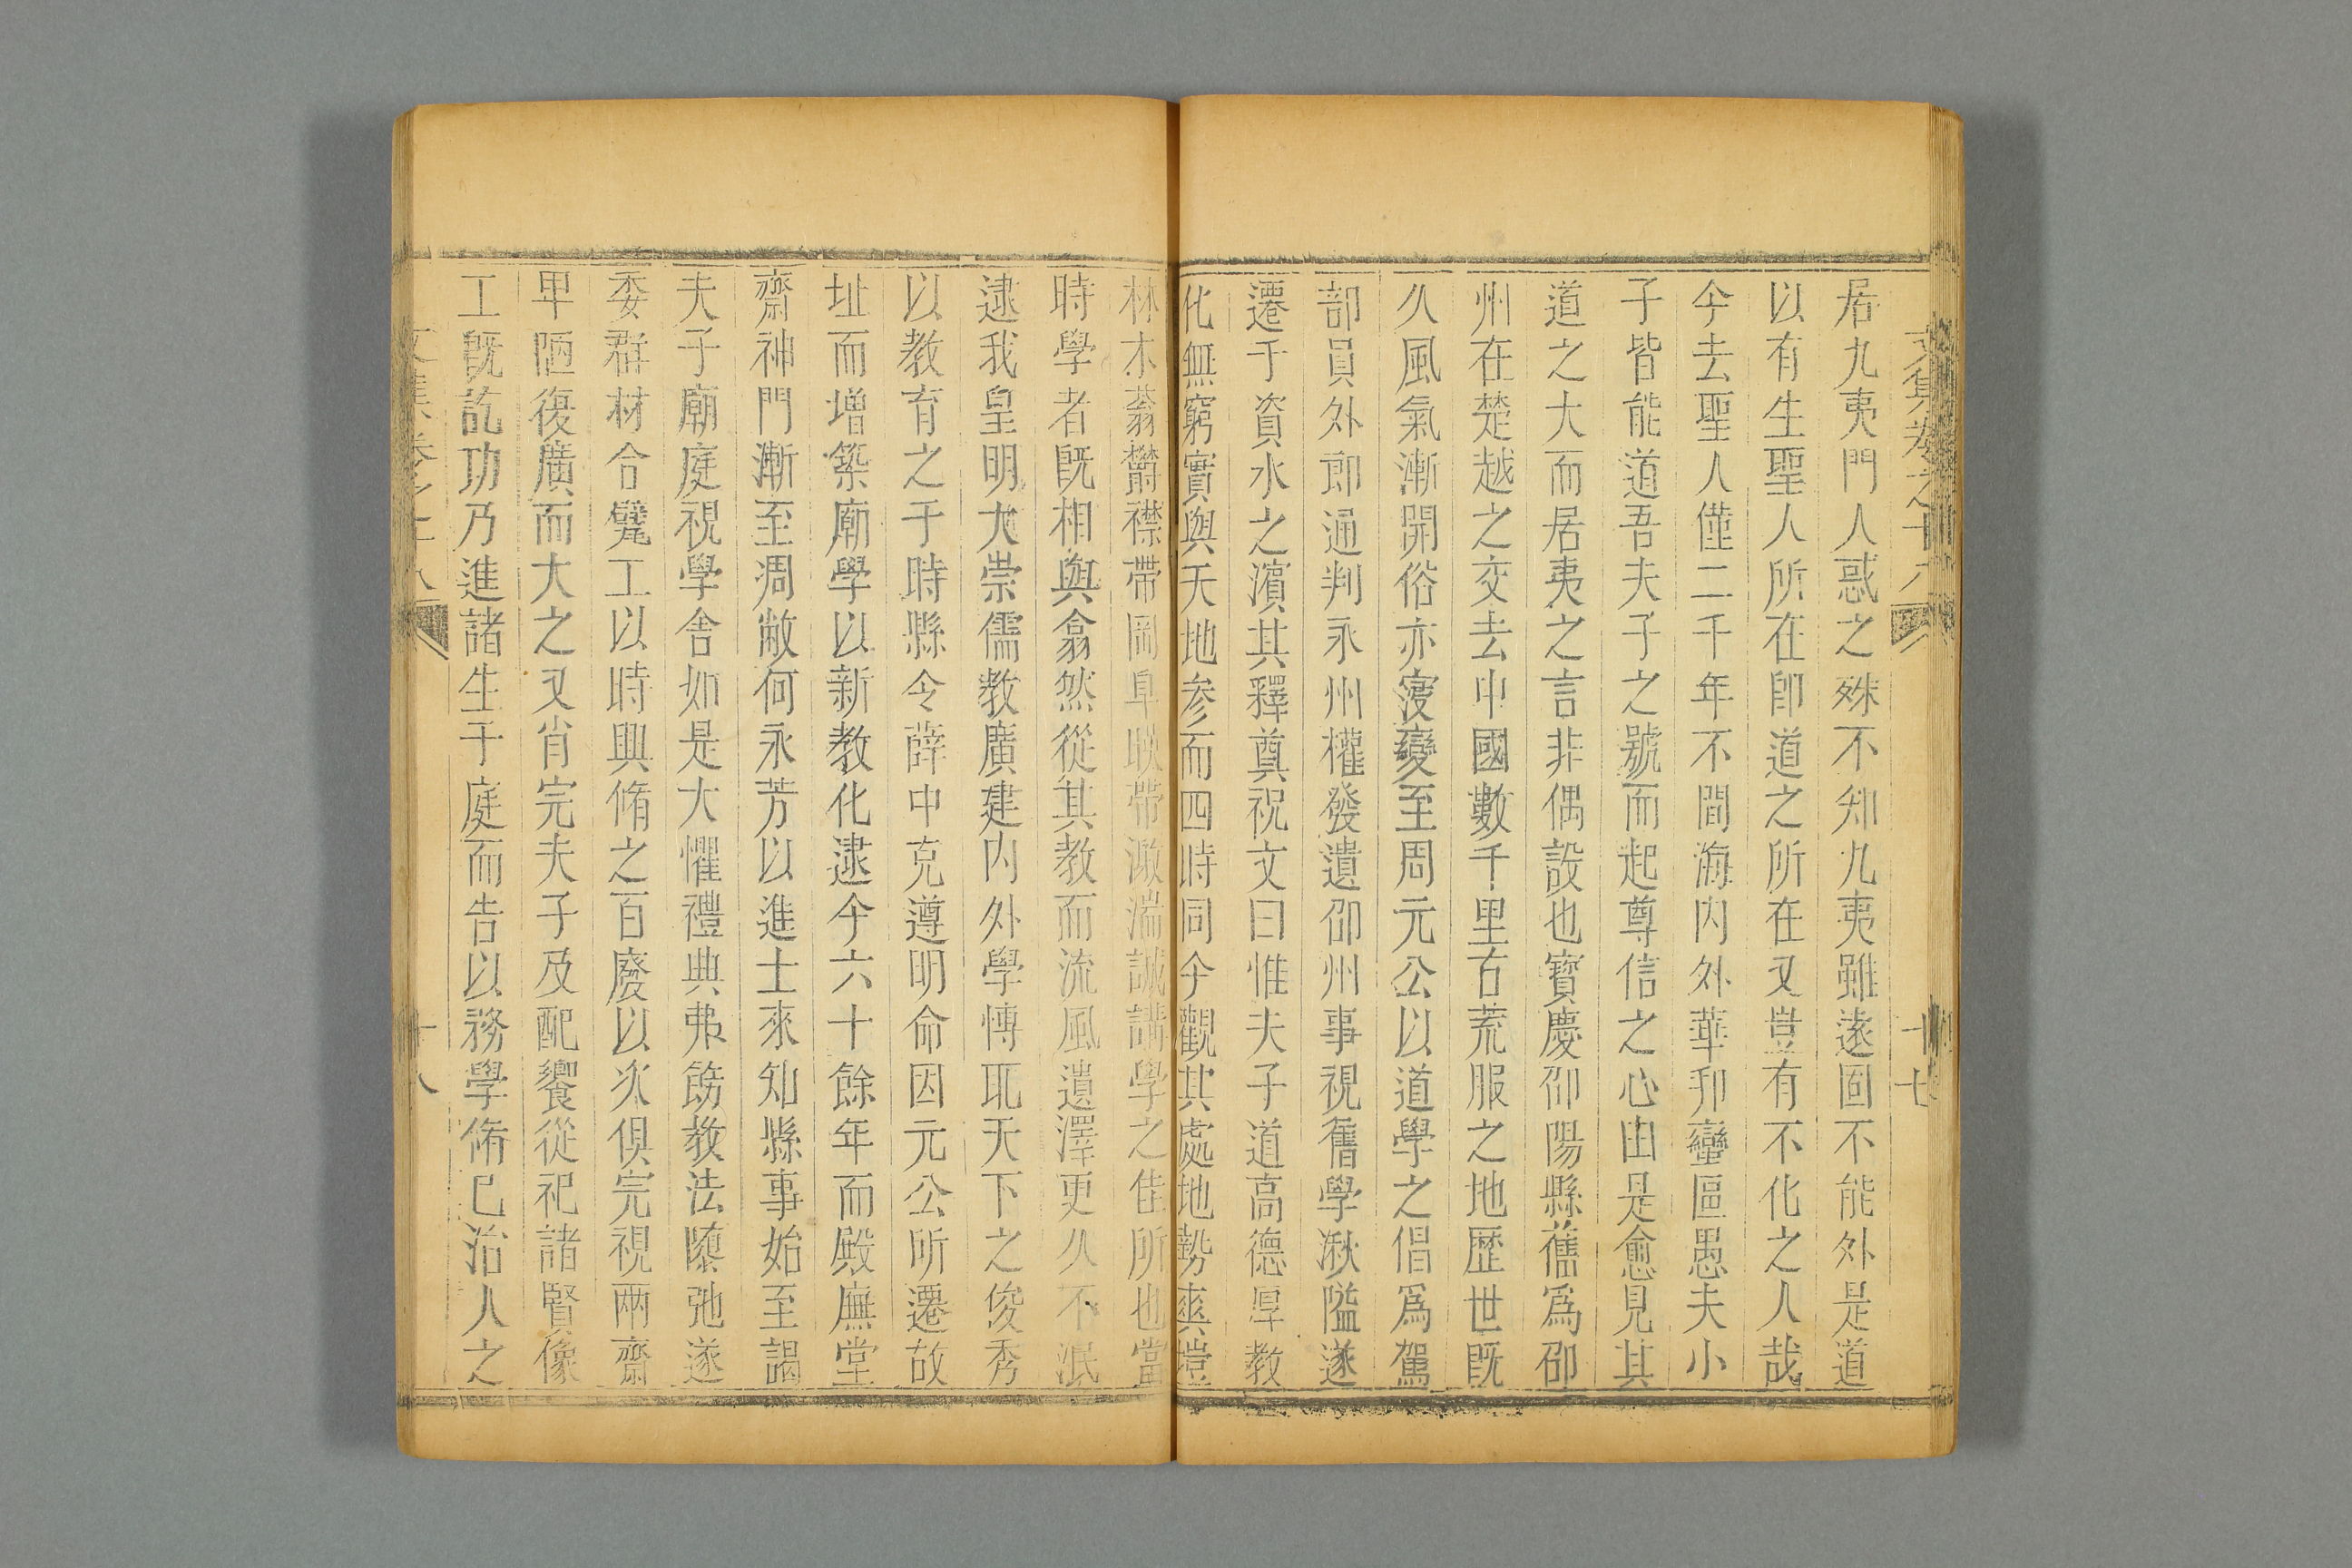 文集卷之十八
十七
居九夷門人惑之殊不知九夷雖遠固不能外是道
以有生聖人所在卽道之所在又豈有不化之人哉
今去聖人僅二千年不間海內外華卭蠻區愚夫小
子皆能道吾夫子之號而起尊信之心由是愈見其
道之大而居夷之言非偶設也寶慶邵陽縣舊爲邵
州在楚越之交去中國數千里古荒服之地歷世既
久風氣漸開俗亦寖變至周元公以道學之倡爲駕
部員外郎通判永州權發遺邵州事視舊學湫隘遂
遷于資水之濱其釋奠祝文曰惟夫子道高德厚教
化無窮實與天地參而四時同今觀其處地勢爽塏
林木蓊鬱襟帶岡阜
誠講學之佳所也當
時學者既相與翕然從其教而流風遺澤更久不泯
逮我皇明大崇儒教廣建内外學慱
天下之俊秀
以教育之于時縣令薛中克遵明命因元公所遷故
址而增築廟學以新教化逮今六十餘年而殿廡堂
齋神門漸至凋敝何永芳以進士來知縣事始至謁
夫子廟庭視學舍如是大懼禮典弗飭教法隳弛遂
委群材合甓工以時興脩之百廢以次俱完視兩齋
卑陋復廣而大之又肖完夫子及配饗從祀諸賢像
工既訖功乃進諸生于庭而告以務學脩己治人之
文集卷之十八
十八